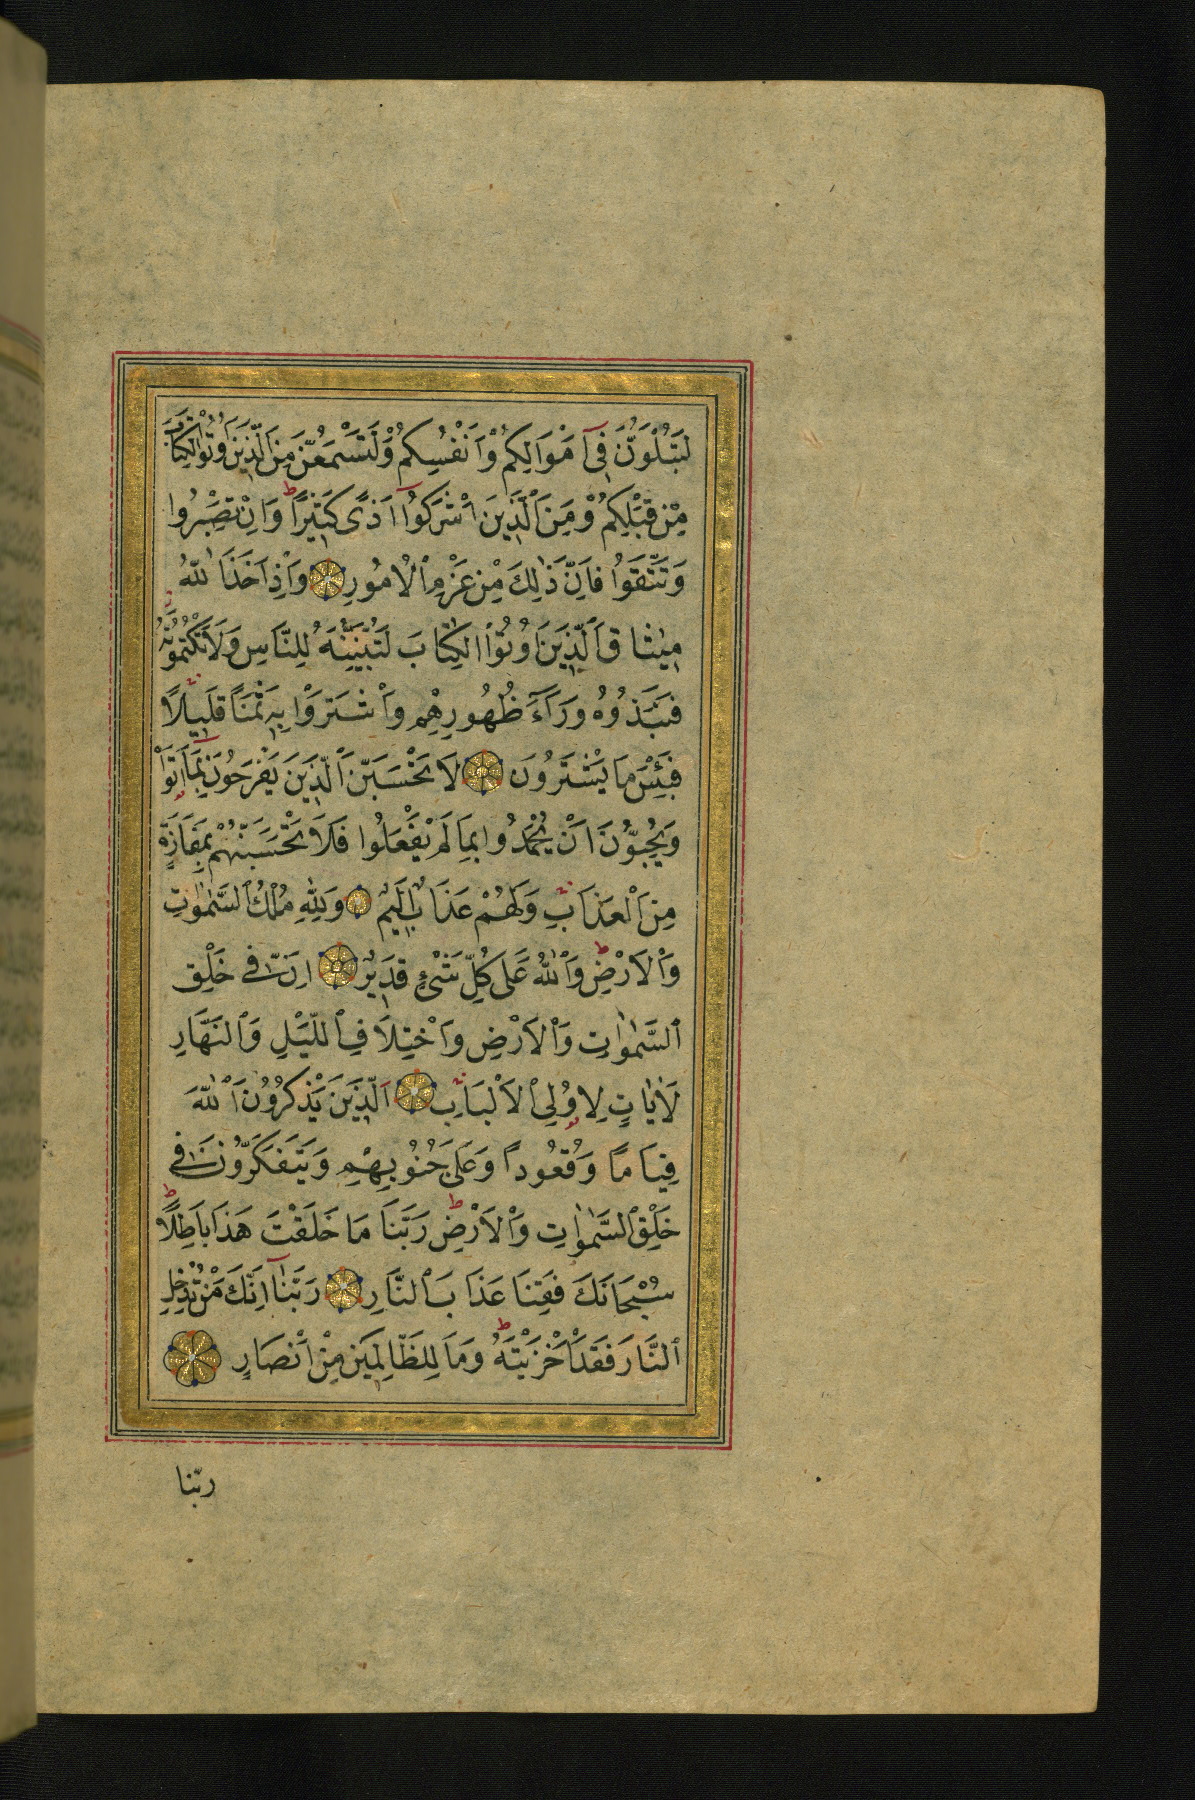 لَتُبْلَوُنَّ فِىٓ اَمْوَالِكُمْ وَاَنْفُسِكُمْ وَلَتَسْمَعُنَّ مِنَ الَّذِينَ اُوتُوا الْكِتَابَ
مِنْ قَبْلِكُمْ وَمِنَ الَّذِينَ اَشْرَكُوٓا اَذًى كَثِيرًا ط وَاِنْ تَصْبِرُوا
وَتَتَّقُوا فَاِنَّ ذٰلِكَ مِنْ عَزْمِ الْاُمُورِ وَاِذْ اَخَذَ اللّٰهُ
مِيثَاقَ الَّذِينَ اُوتُوا الْكِتَابَ لَتُبَيِّنُنَّهُ لِلنَّاسِ وَلَا تَكْتُمُونَهُ
فَنَبَذُوهُ وَرَآءَ ظُهُورِهِمْ وَاشْتَرَوْا بِهِ ثَمَنًا قَلِيلًا
فَبِئْسَ مَا يَشْتَرُونَ لَا تَحْسَبَنَّ الَّذِينَ يَفْرَحُونَ بِمَآ اَتَوْا
وَيُحِبُّونَ اَنْ يُحْمَدُوا بِمَا لَمْ يَفْعَلُوا فَلَا تَحْسَبَنَّهُمْ بِمَفَازَةٍ
مِنَ الْعَذَابِ وَلَهُمْ عَذَابٌ اَلِيمٌ وَلِلّٰهِ مُلْكُ السَّمٰوَاتِ
وَالْاَرْضِ ط وَاللّٰهُ عَلَى كُلِّ شَىْءٍ قَدِيرٌ اِنَّ فِى خَلْقِ
السَّمٰوَاتِ وَالْاَرْضِ وَاخْتِلَافِ اللَّيْلِ وَالنَّهَارِ
لَاٰيَاتٍ لِاُولِى الْاَلْبَابِ اَلَّذِينَ يَذْكُرُونَ اللّٰهَ
قِيَامًا وَقُعُودًا وَعَلَى جُنُوبِهِمْ وَيَتَفَكَّرُونَ فِى
خَلْقِ السَّمٰوَاتِ وَالْاَرْضِ ط رَبَّنَا مَا خَلَقْتَ هَذَا بَاطِلًا ط
سُبْحَانَكَ فَقِنَا عَذَابَ النَّارِ رَبَّنَآ اِنَّكَ مَنْ تُدْخِلِ
النَّارَ فَقَدْ اَخْزَيْتَهُ ط وَمَا لِلظَّالِمِينَ مِنْ اَنْصَارٍ
ربّنا